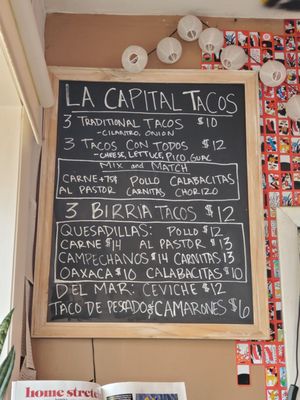 LA CAPITAL TACOS
3 TRADITIONAL TACOS $10
-CILANTRO, ONION
3 TACOS CON TODOS $12
-CHEESE, LETTUCE, PICO, GUAC
MIX AND MATCH
CARNE +75¢ POLLO CALABACITAS
AL PASTOR CARNITAS CHORIZO
3 BIRRIA TACOS $12
QUESADILLAS: POLLO $12
CARNE $14 AL PASTOR $13
CAMPECHANOS $14 CARNITAS $13
OAXACA $10 CALABACITAS $10
DEL MAR: CEVICHE $12
TACO DE PESCADO & CAMARONES $6
home stretc